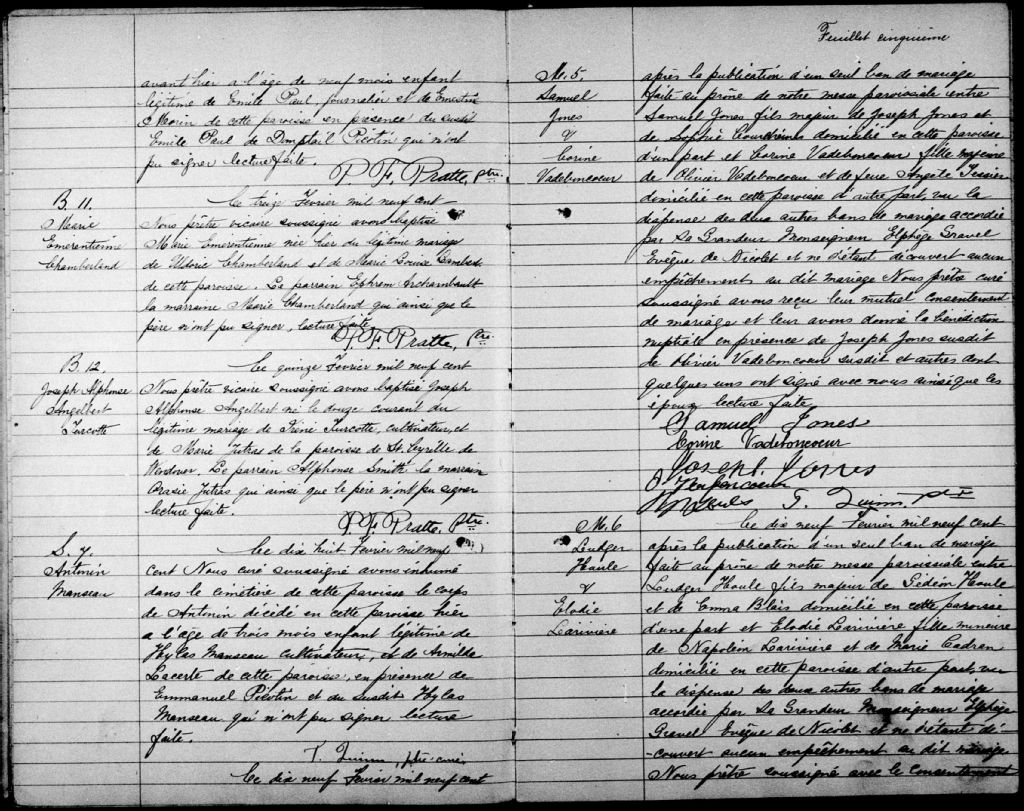 avant hier a l'age de neuf mois enfant
légitime de Emile Paul, journalier et de Ernestine
Morin de cette paroisse en presence du susdit
Emile Paul de Picotin qui n'ont
pu signer lecture faite.
P. F. Pratte, ptre.
B 11.
Marie
Emerentienne
Chamberland
Le treize Fevrier mil neuf cent
Nous prêtre vicaire soussigné avons baptisé
Marie Emerentienne née hier du légitime mariage
de Ulderic Chamberland et de Marie Louise
de cette paroisse. Le parrain Ephrem Archambault
la marraine Marie Chamberland qui ainsi que le
père n'ont pu signer, lecture faite
P. F. Pratte, ptre.
B 12.
Joseph Alphonse
Angelbert
Turcotte
Le quinze Fevrier mil neuf cent
Nous prêtre vicaire soussigné avons baptisé Joseph
Alphonse Angelbert né le douze courant du
légitime mariage de Iréné Turcotte, cultivateur, et
de Marie Jutras de la paroisse de St. Cyrille de
Wendover. Le parrain Alphonse Smith la marraine
Orasie Jutras qui ainsi que le père n'ont pu signer
lecture faite.
P. F. Pratte. ptre.
S. 7.
Antonin
Manseau
Le dix huit Fevrier mil neuf
cent Nous curé soussigné avons inhumé
dans le cimetière de cette paroisse le corps
de Antonin décédé en cette paroisse hier
a l'âge de trois mois enfant légitime de
Hylas Manseau cultivateur, et de Armilda
Lacerte de cette paroisse, en présence de
Emmanuel Picotin et du susdit Hylas
Manseau qui n'ont pu signer lecture
faite.
T. Quinn, ptre curé
Le dix neuf Fevrier mil neuf cent
Feuillet cinquieme
M. 5.
Samuel
Jones
&
Corine
Vadeboncoeur
après la publication d'un seul ban de mariage
faite au prône de notre messe paroissiale entre
Samuel Jones fils majeur de Joseph Jones et
de Sophie domicilié en cette paroisse
d'une part et Corine Vadeboncoeur fille majeure
de Olivier Vadeboncoeur et de feue Angèle Tessier
domiciliée en cette paroisse d'autre part, vu la
dispense des deux autres bans de mariage accordée
par Sa Grandeur Monseigneur Elphège Gravel
Evêque de Nicolet et ne s'étant découvert aucun
empêchement au dit mariage Nous prêtre curé
soussigné avons reçu leur mutuel consentement
de mariage et leur avons donné la bénédiction
nuptiale en présence de Joseph Jones susdit
de Olivier Vadeboncoeur susdit et autres dont
quelques uns ont signé avec nous ainsi que les
époux lecture faite
Samuel Jones
Corine Vadeboncoeur
Joseph Jones
T. Quinn, ptr
M. 6
Ludger
Houle
&
Elodie
Larivière
Le dix neuf Fevrier mil neuf cent
après la publication d'un seul ban de mariage
faite au prône de notre messe paroissiale entre
Ludger Houle fils majeur de Gédéon Houle
et de Emma Blais domicilié en cette paroisse
d'une part et Elodie Larivière fille mineure
de Napoléon Larivière et de Marie Cadran
domicilié en cette paroisse d'autre part, vu
la dispense des deux autres bans de mariage
accordée par Sa Grandeur Monseigneur Elphège
Gravel Evêque de Nicolet et ne s'étant dé-
-couvert aucun empêchement au dit mariage
Nous prêtre soussigné avec le consentement